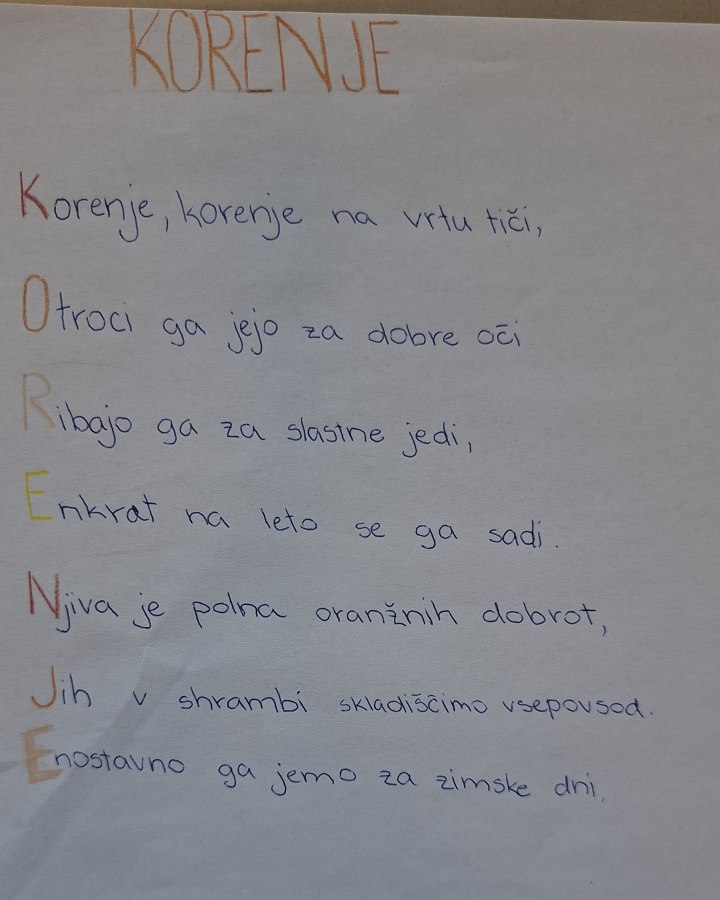 KORENJE
Korenje, korenje na vrtu tiči,
Otroci ga jejo za dobre oči
Ribajo ga za slastne jedi,
Enkrat na leto se ga sadi.
Njiva je polna oranžnih dobrot,
Jih v shrambi skladiščimo vsepovsod.
Enostavno ga jemo za zimske dni.